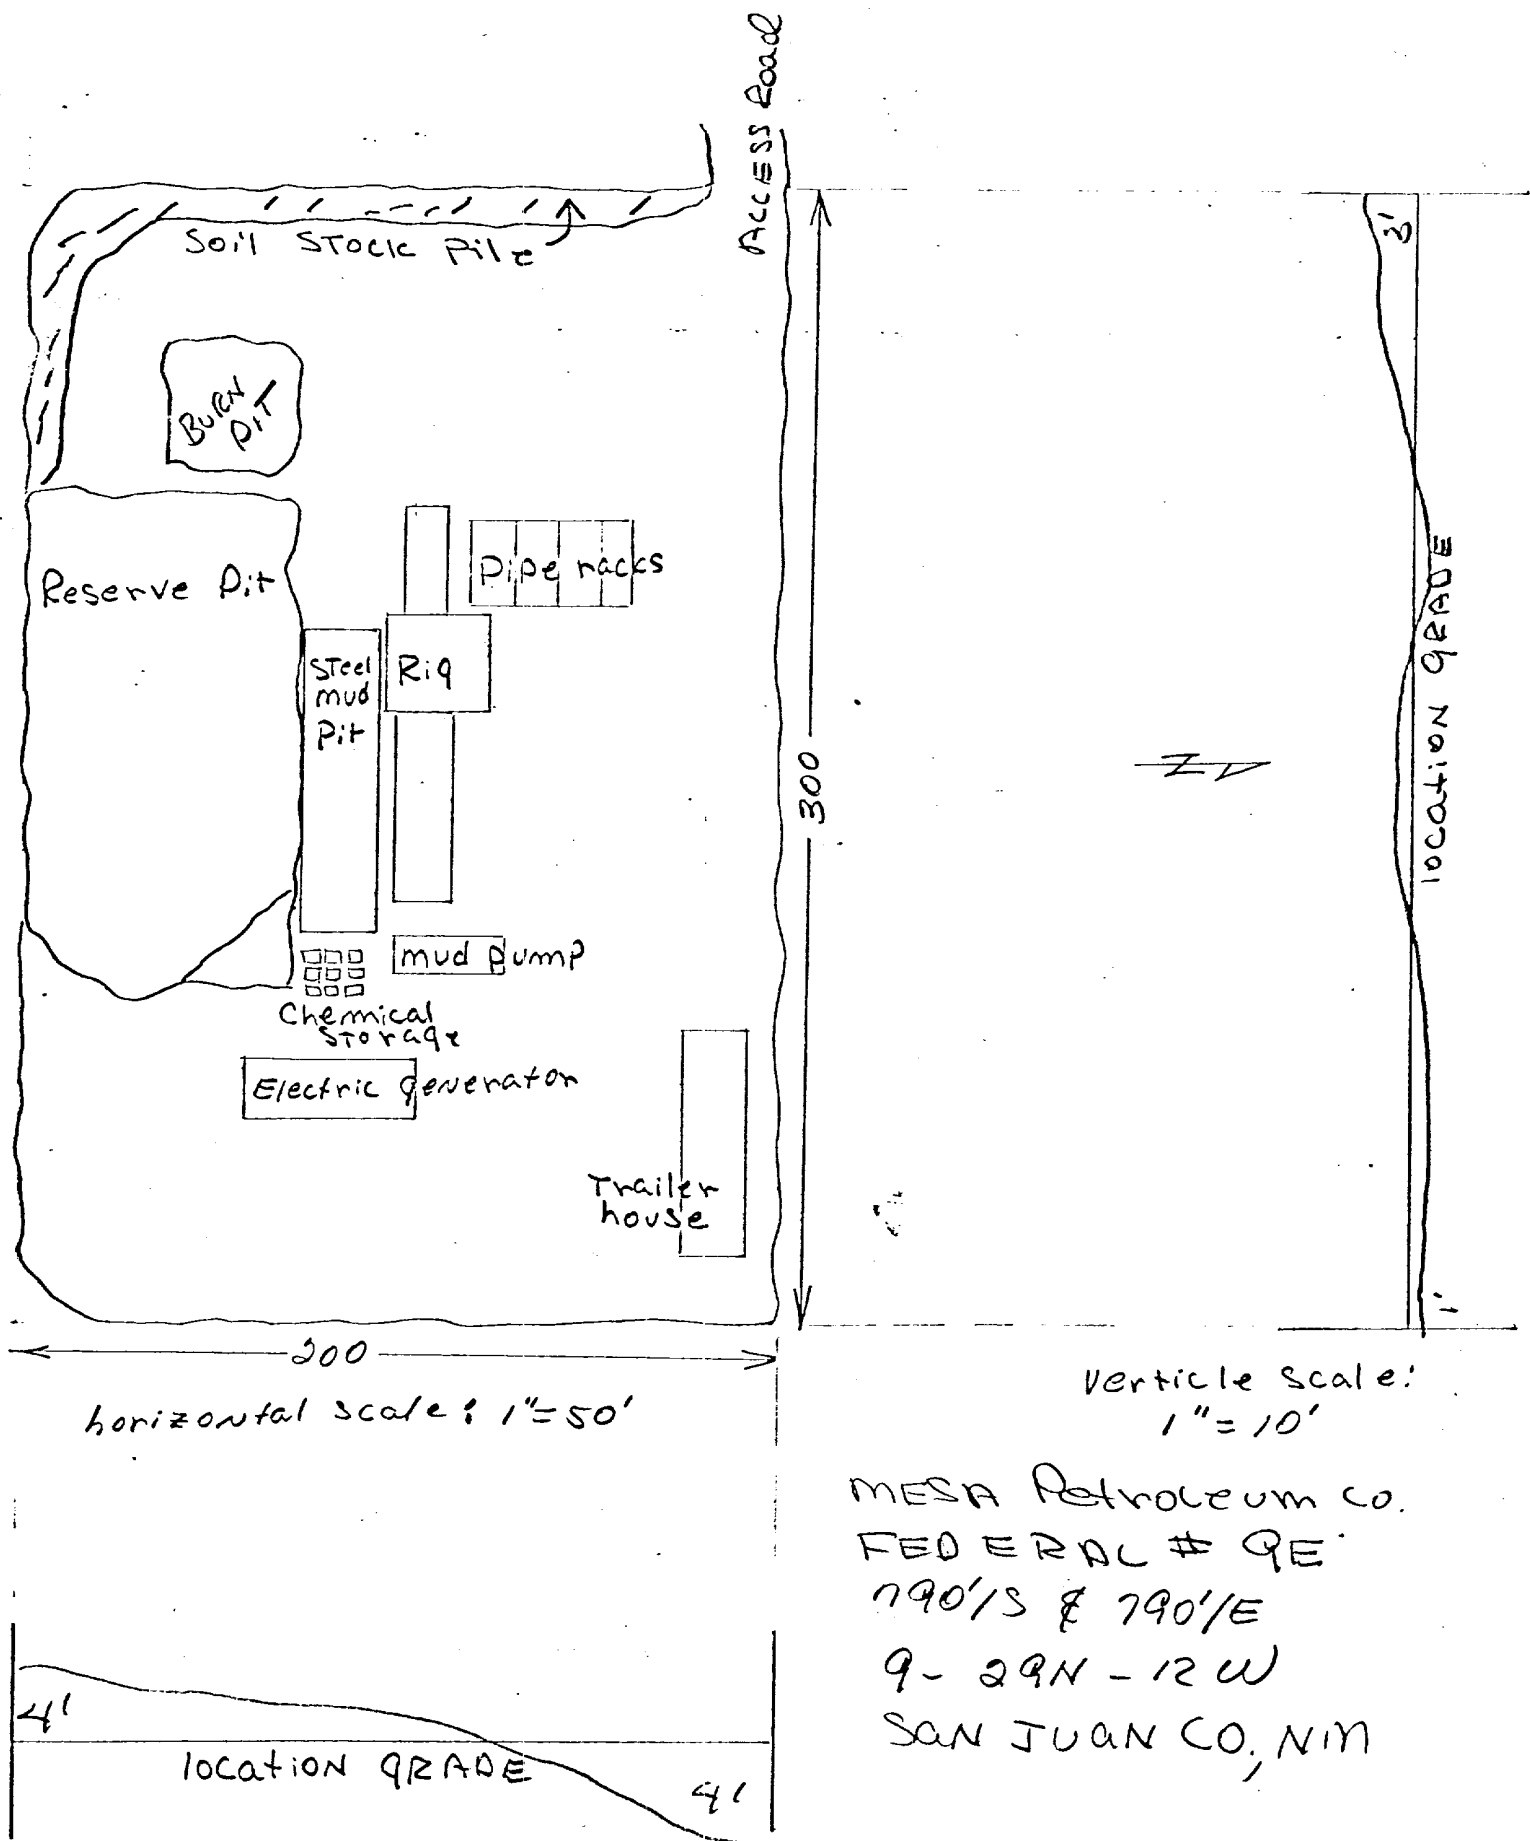 Access Road
Soil Stock Pile
3'
Burn
Pit
Reserve Pit
Pipe racks
location GRADE
Steel
mud
Pit
Rig
300
N
mud pump
Chemical
Storage
Electric generator
Trailer
house
1'
200
horizontal scale: 1"=50'
Verticle Scale:
1"=10'
MESA Petroleum Co.
FEDERAL # 9E
790'/S & 790'/E
9-29N-12W
SAN JUAN CO, NM
4'
location GRADE
4'